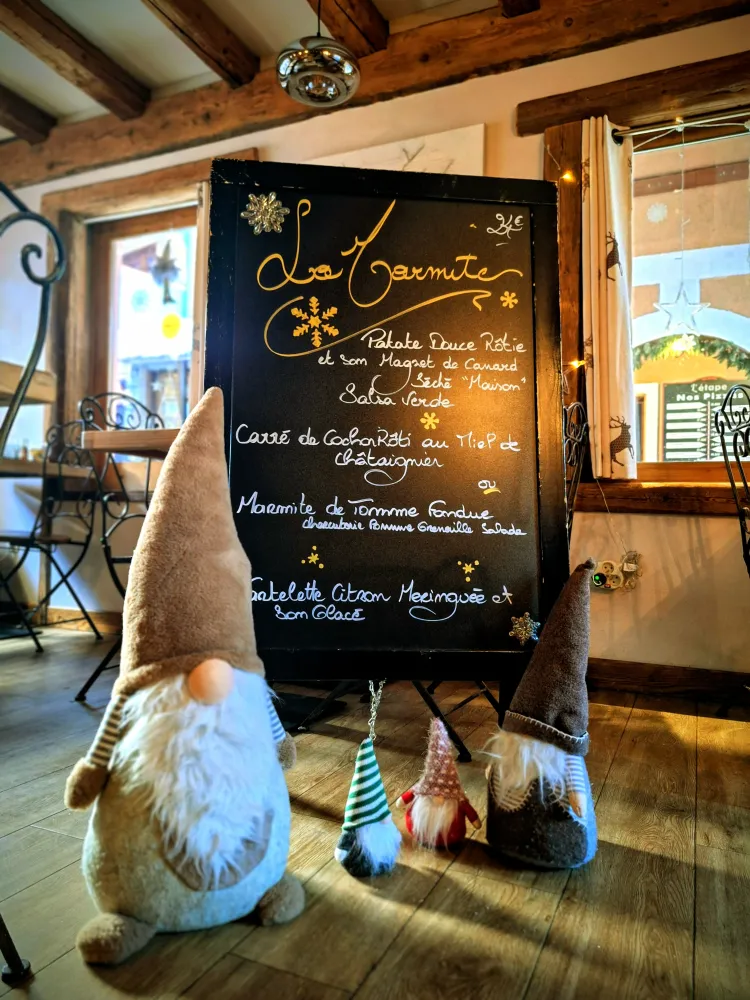 La Marmite
Patate Douce Rôtie
et son Magret de Canard
Séché "Maison"
Salsa Verde
Carré de Cochon Rôti au Miel de
châtaignier
ou
Marmite de Tomme Fondue
charcuterie Pomme Grenaille Salade
Tartelette Citron Meringuée et
son Glacé
L'étape
Nos